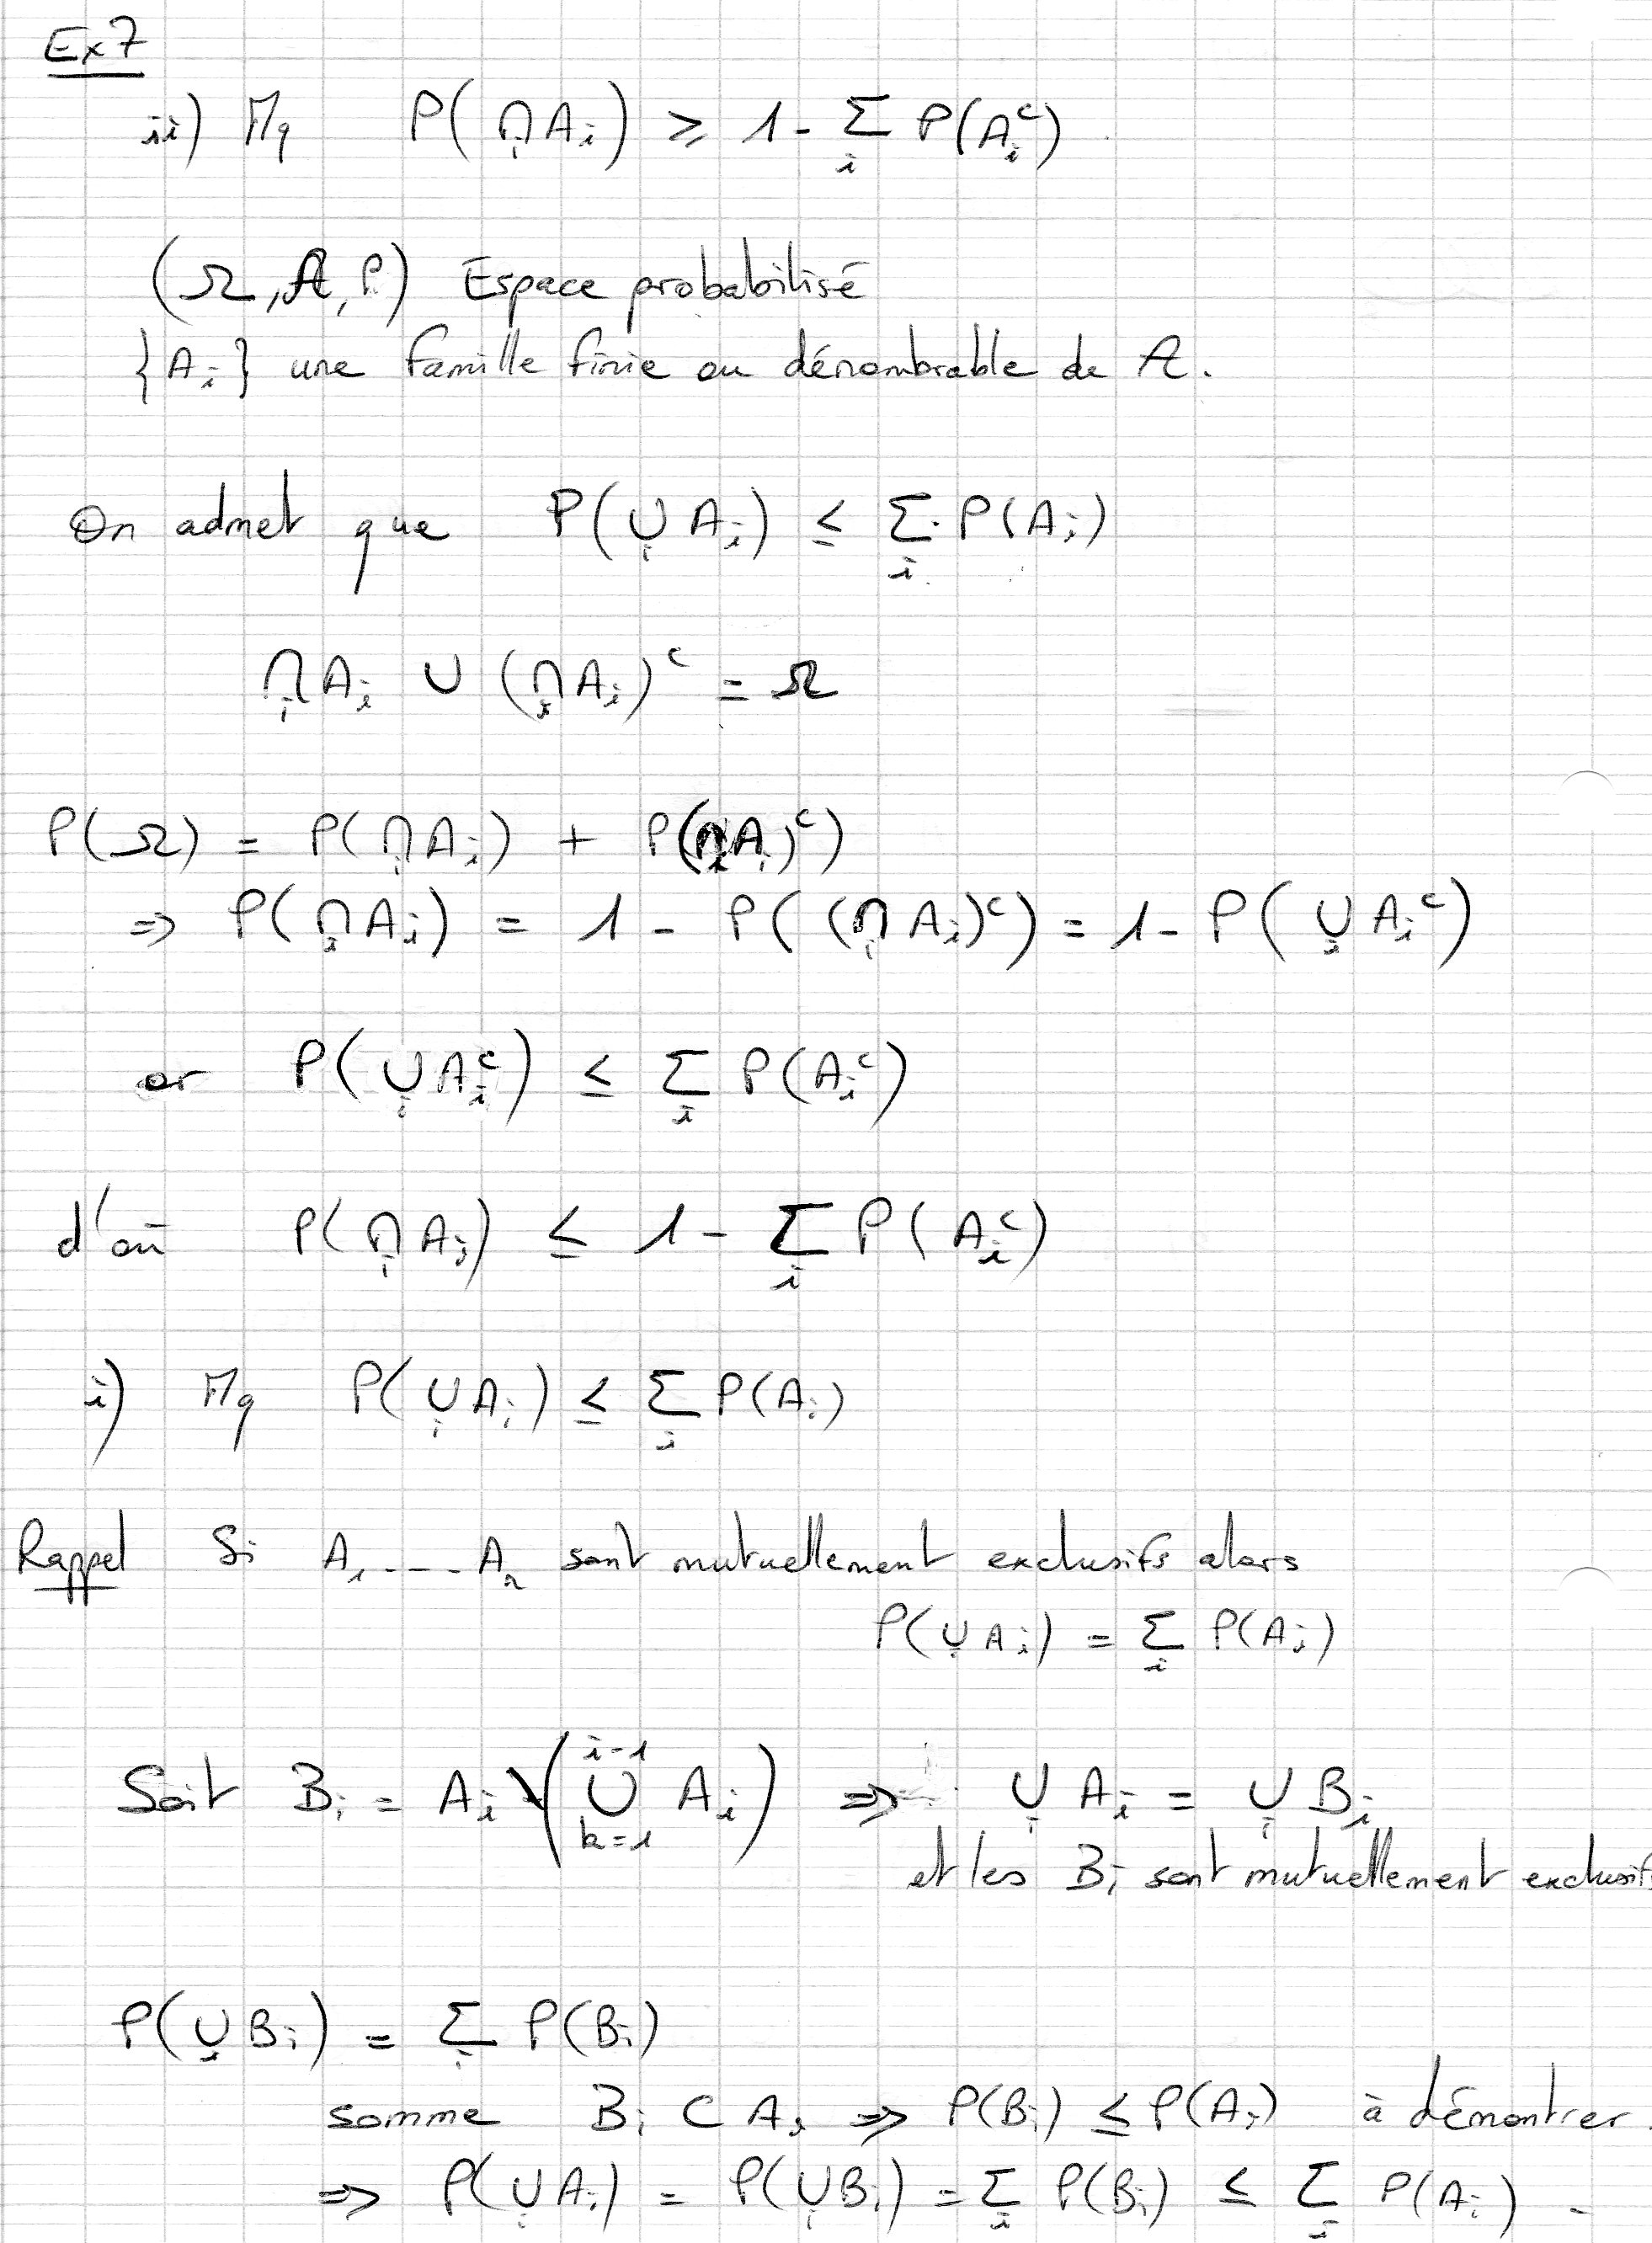 Ex7
ii) Mq P(∩_i A_i) ≥ 1 - Σ_i P(A_i^c)
(Ω, A, P) Espace probabilisé
{A_i} une famille finie ou dénombrable de A.
On admet que P(∪_i A_i) ≤ Σ_i P(A_i)
∩_i A_i ∪ (∩_i A_i)^c = Ω
P(Ω) = P(∩_i A_i) + P((∩_i A_i)^c)
⇒ P(∩_i A_i) = 1 - P((∩_i A_i)^c) = 1 - P(∪_i A_i^c)
or P(∪_i A_i^c) ≤ Σ_i P(A_i^c)
d'où P(∩_i A_i) ≤ 1 - Σ_i P(A_i^c)
i) Mq P(∪_i A_i) ≤ Σ_i P(A_i)
Rappel Si A_1 --- A_n sont mutuellement exclusifs alors
P(∪_i A_i) = Σ_i P(A_i)
Soit B_i = A_i \ (∪_{k=1}^{i-1} A_i) ⇒ ∪_i A_i = ∪_i B_i
et les B_i sont mutuellement exclusifs
P(∪_i B_i) = Σ_i P(B_i)
somme B_i ⊂ A_i ⇒ P(B_i) ≤ P(A_i) à démontrer.
⇒ P(∪_i A_i) = P(∪_i B_i) = Σ_i P(B_i) ≤ Σ_i P(A_i) -